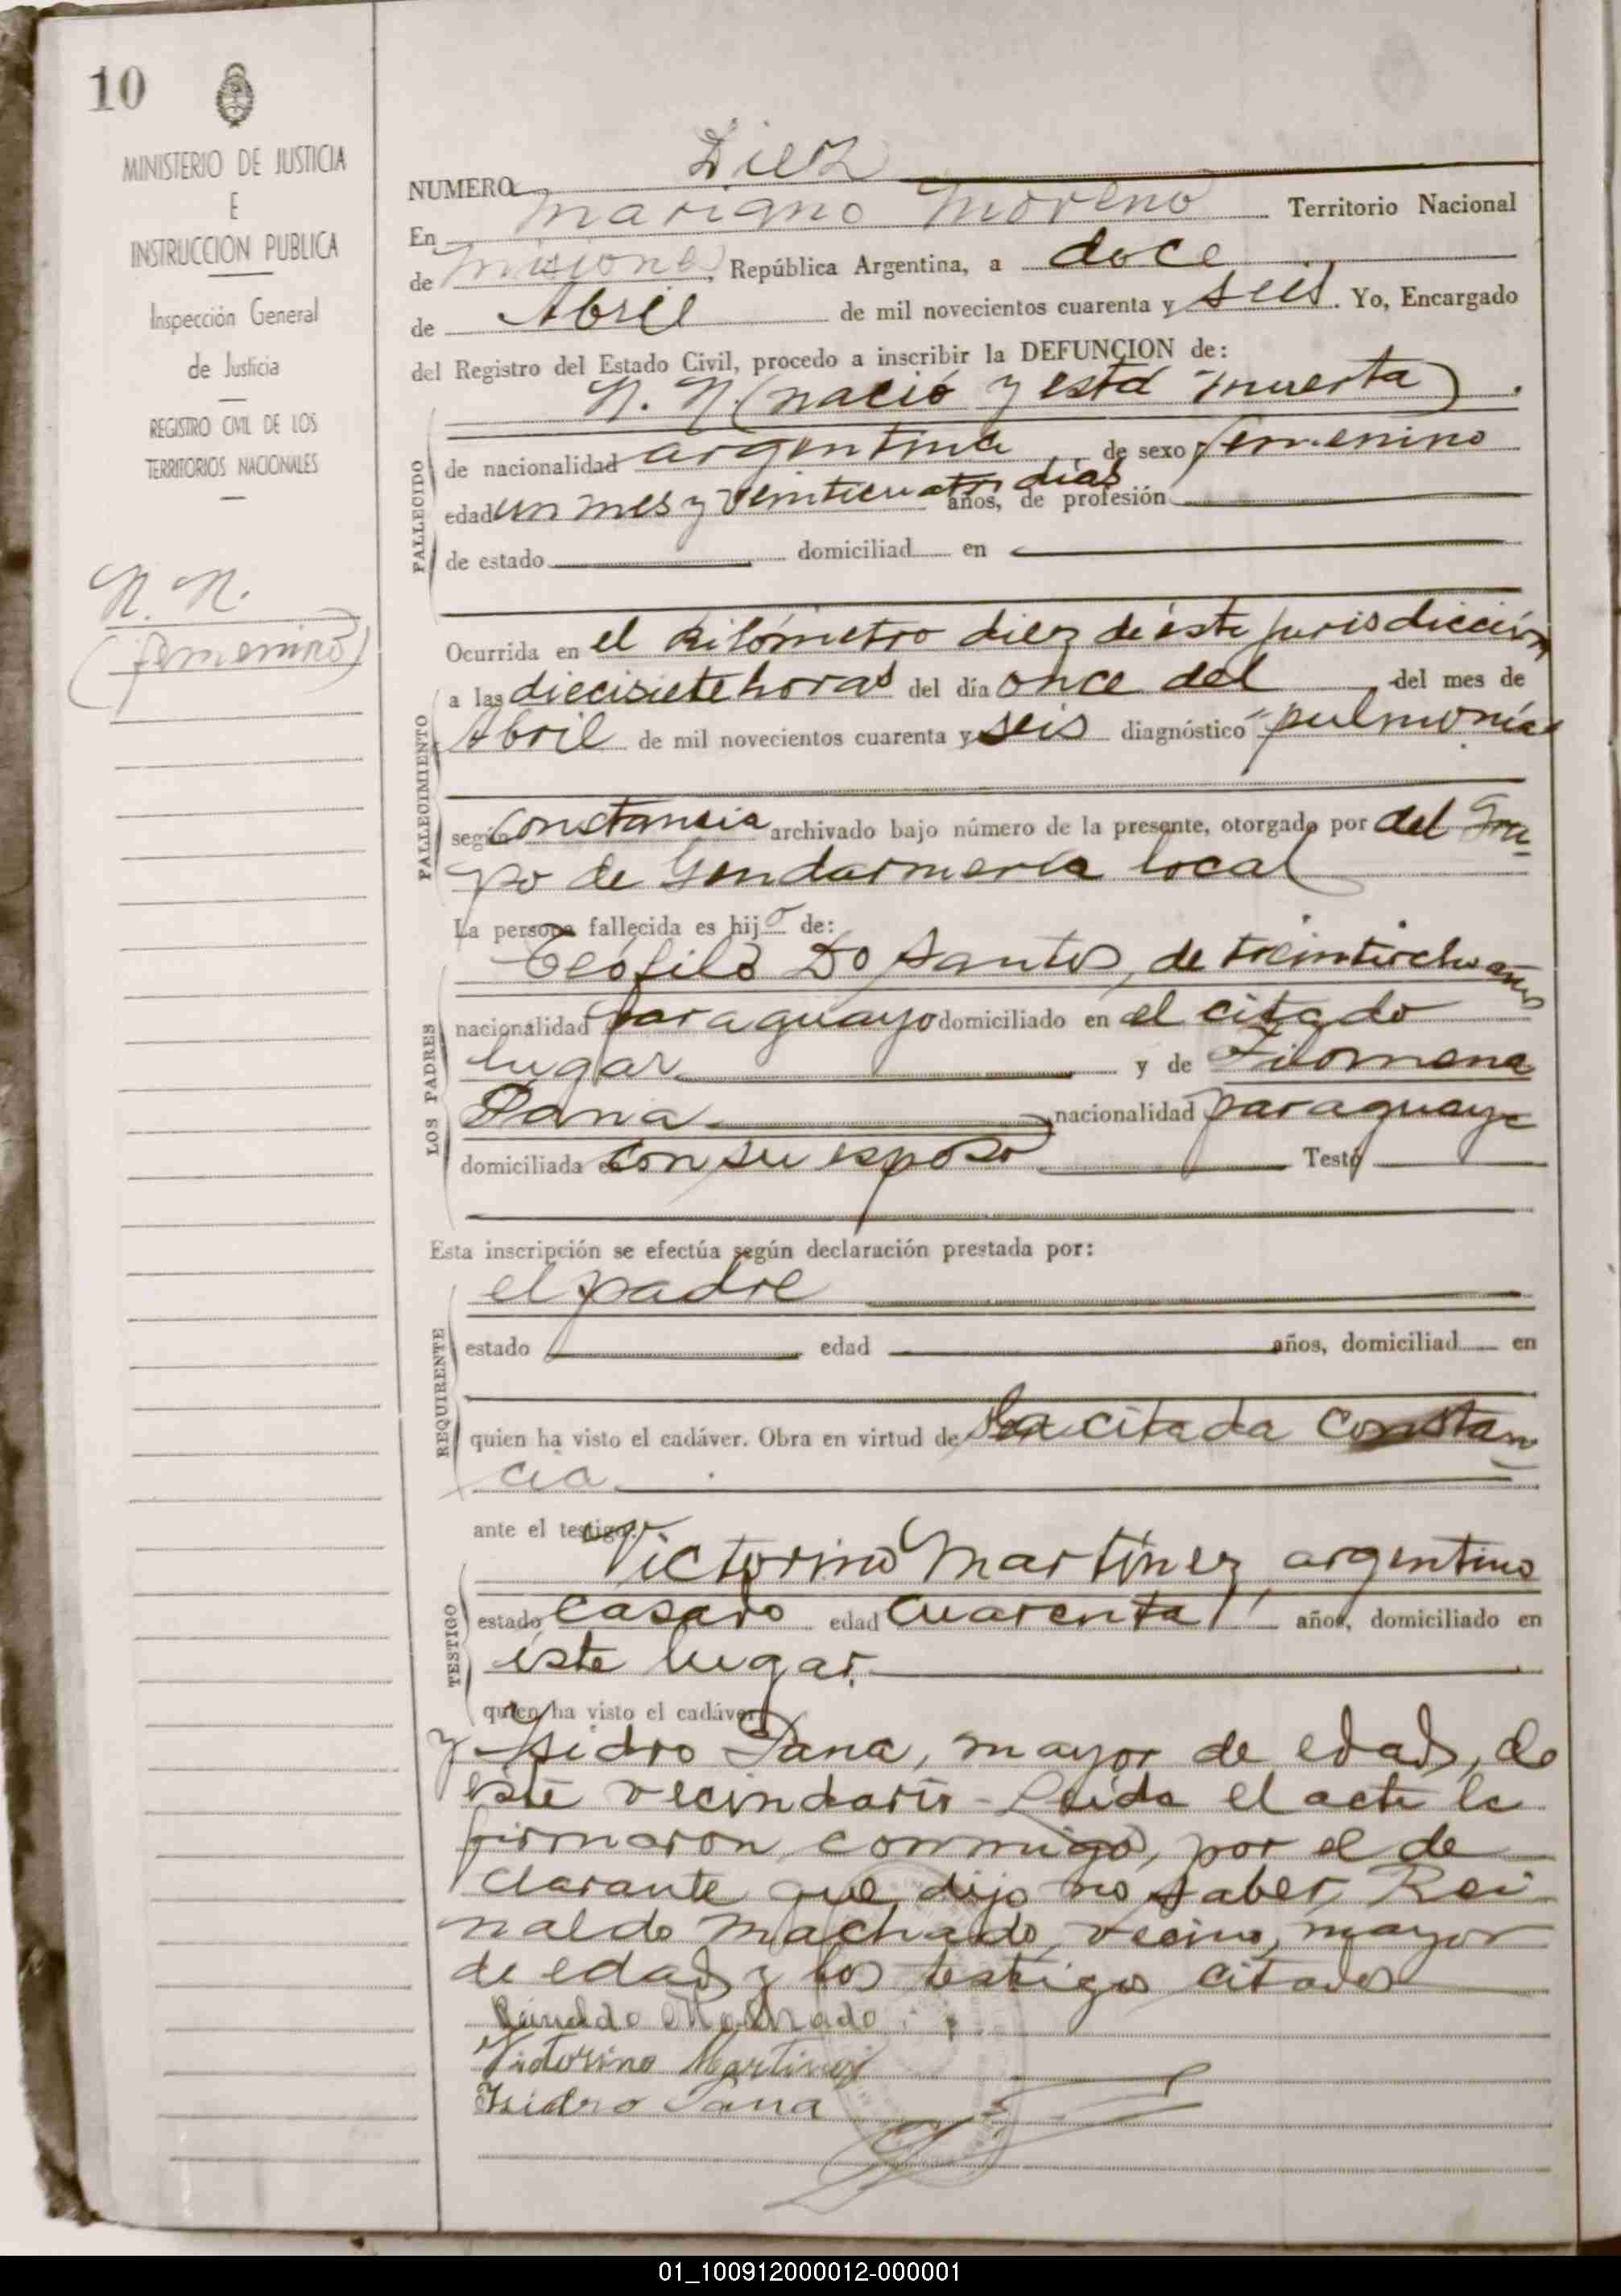 10
MINISTERIO DE JUSTICIA
E
INSTRUCCION PUBLICA
Inspección General
de Justicia
REGISTRO CIVIL DE LOS
TERRITORIOS NACIONALES
N. N.
(femenino)
NUMERO Diez
En Mariano Moreno Territorio Nacional
de Misiones, República Argentina, a doce
de Abril de mil novecientos cuarenta y seis. Yo, Encargado
del Registro del Estado Civil, procedo a inscribir la DEFUNCION de:
N. N. (nació y está muerta).
FALLECIDO
de nacionalidad argentina de sexo femenino
edad un mes y veinticuatro días años, de profesión
de estado domiciliad en
FALLECIMIENTO
Ocurrida en el kilómetro diez de éste jurisdicción
a las diecisiete horas del día once del del mes de
Abril de mil novecientos cuarenta y seis diagnóstico "pulmonía"
según constancia archivado bajo número de la presente, otorgado por del Gru
po de Gendarmería local
La persona fallecida es hij de:
LOS PADRES
Teófilo Do Santos, de treintiocho años
nacionalidad paraguayo domiciliado en el citado
lugar y de Filomena
nacionalidad paraguaya
domiciliada con su esposo Testó
Esta inscripción se efectúa según declaración prestada por:
REQUIRENTE
el padre
estado edad años, domiciliad en
quien ha visto el cadáver. Obra en virtud de la citada constan
cia
ante el testigo:
TESTIGO
Victorino Martínez, argentino
estado casado edad cuarenta años, domiciliado en
éste lugar.
quien ha visto el cadáver
y Isidro mayor de edad, de
éste vecindario - Leída el acta la
firmaron conmigo, por el de
clarante que dijo no saber, Rei
naldo Machado, vecino, mayor
de edad y los testigos citados
Machado
Victorino Martinez
Isidro
01_100912000012-000001